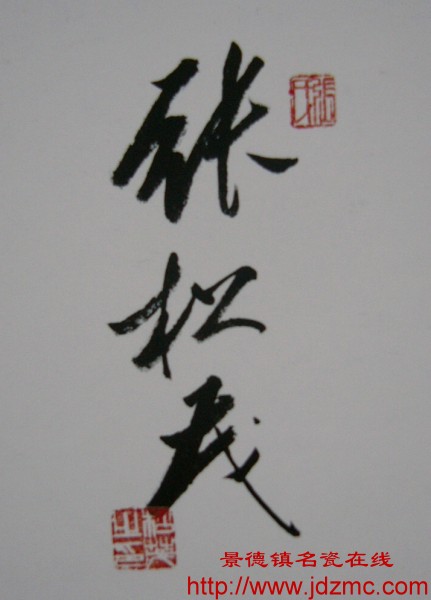 张松茂
张氏
松茂之印
景德镇名瓷在线
http://www.jdzmc.com